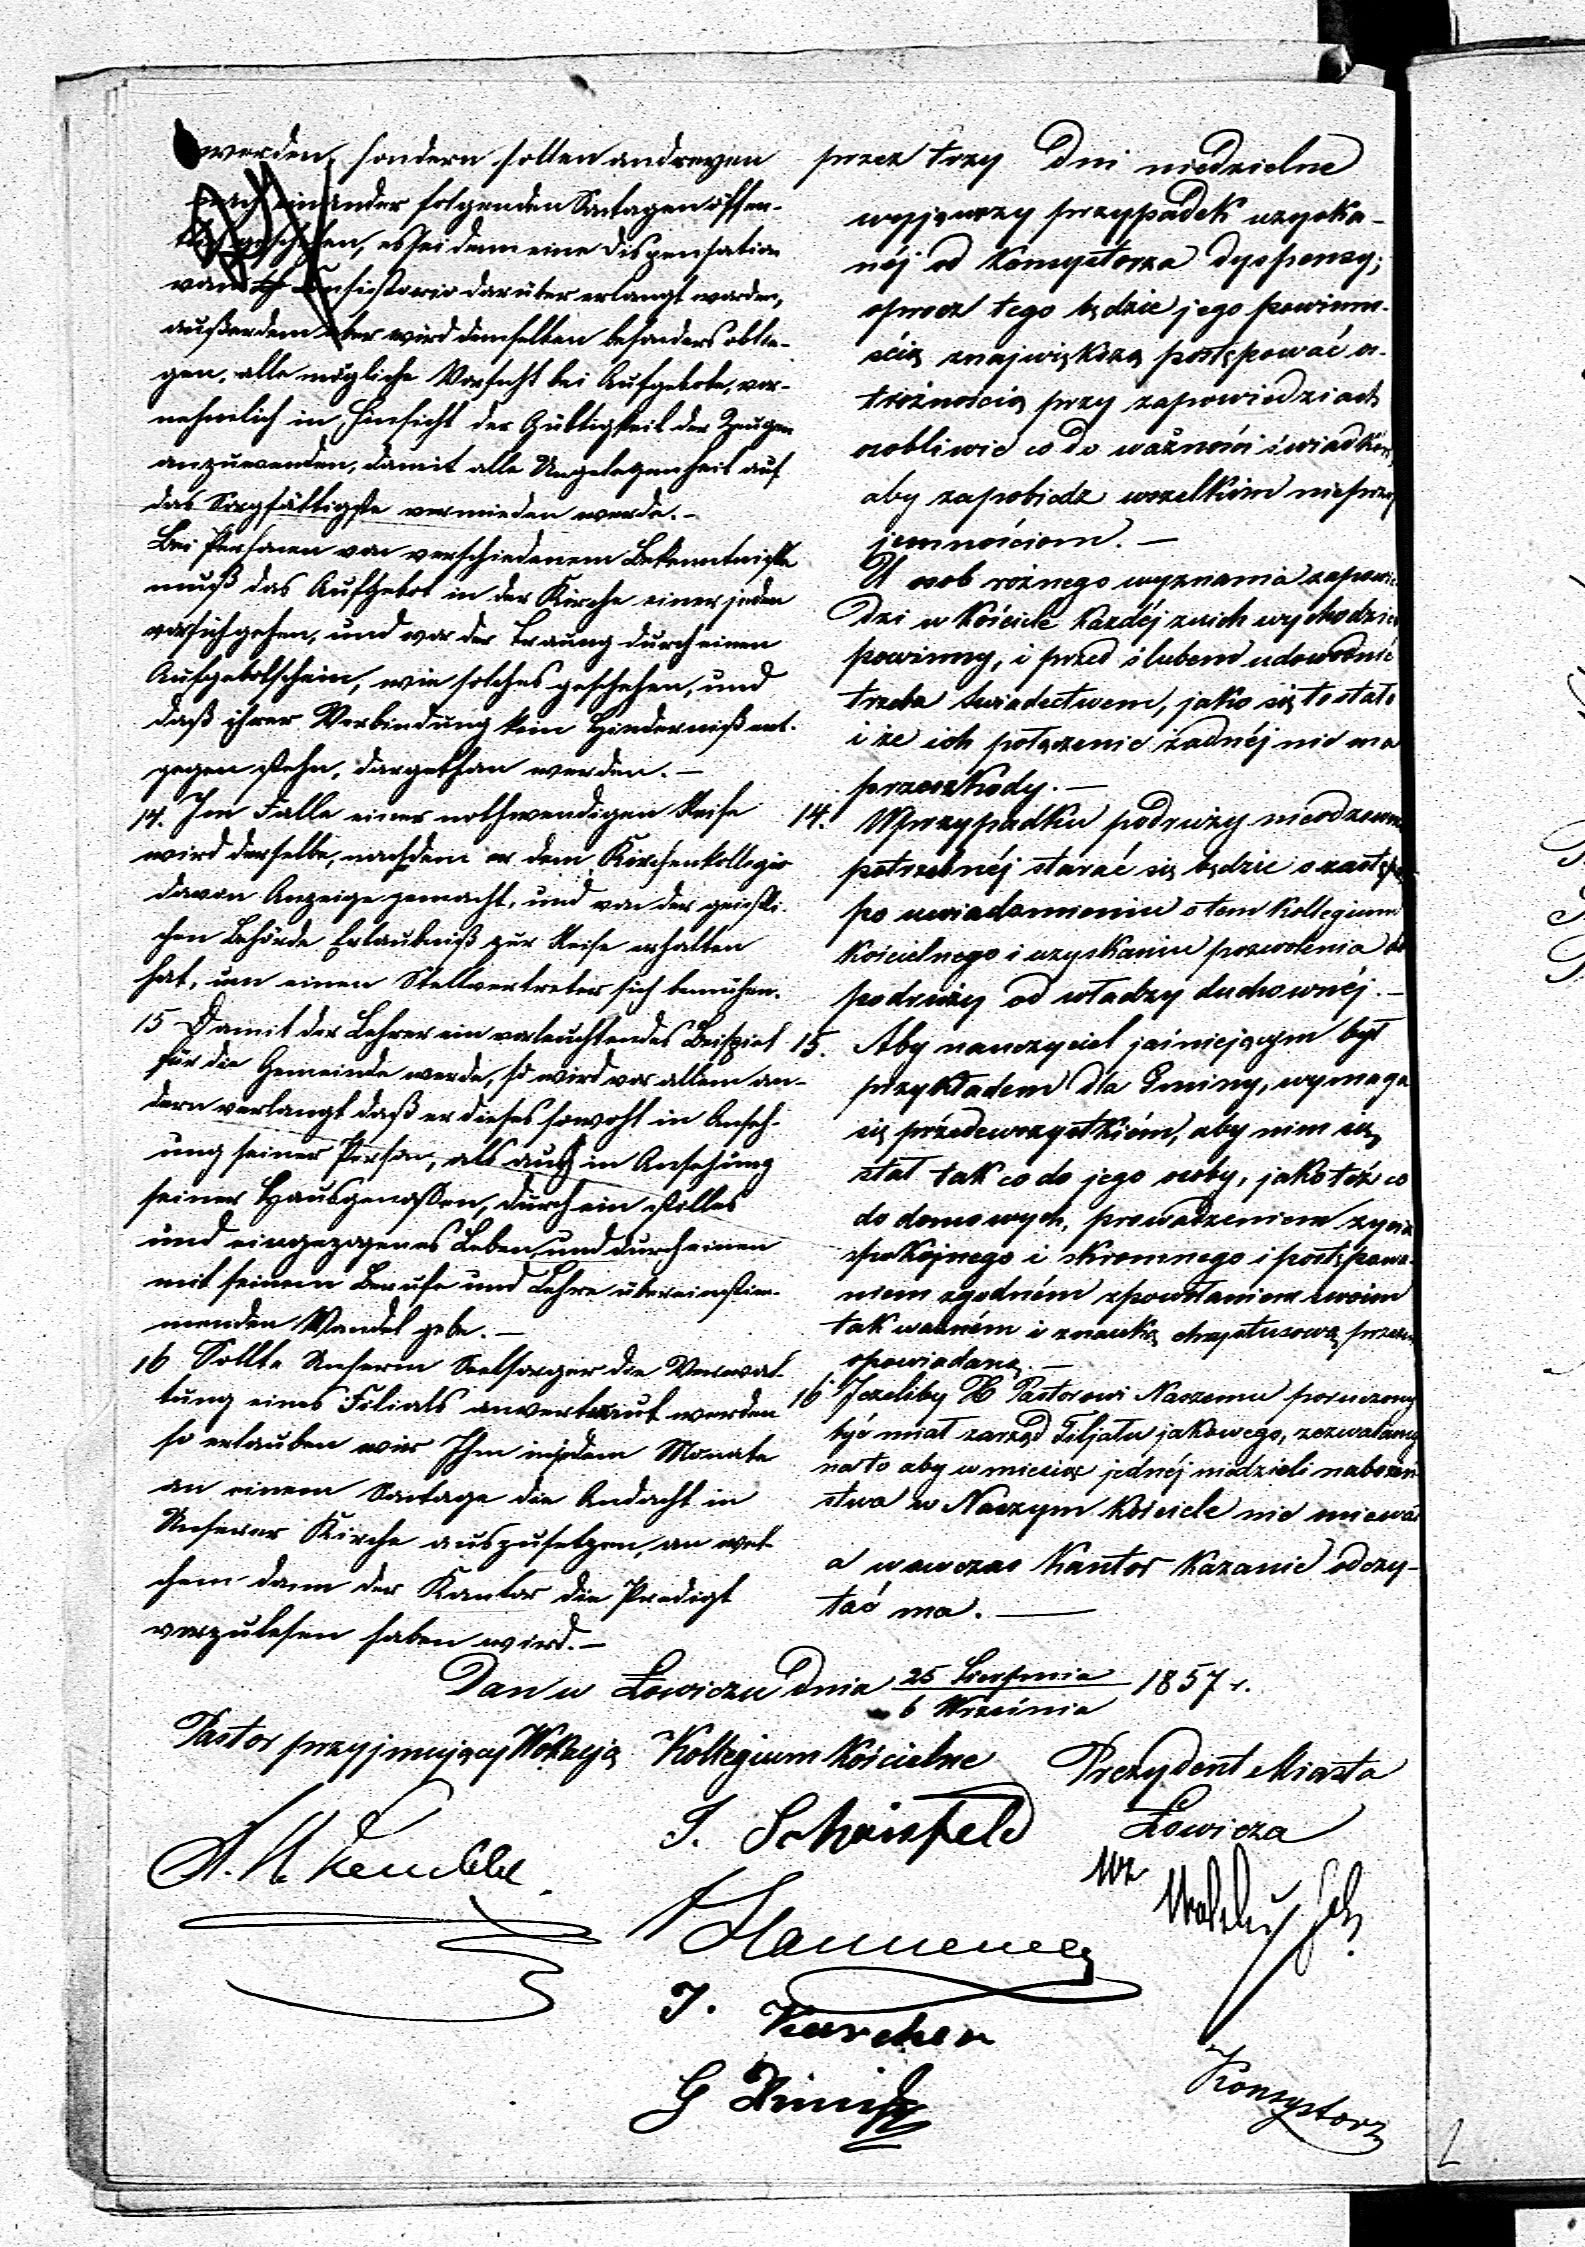 werden, sondern sollen an dreyen
nach einander folgenden Sontagen öffent-
lich geschehen, es sei denn eine Dispensation
vom Consistorio darüber erlangt worden,
außerdem aber wird demselben besonders oblie-
gen, alle mögliche Vorsicht bei Aufgebote, vor-
nehmlich in Hinsicht der Gültigkeit der Zeugen
anzuwenden, damit alle Ungelegenheit auf
das Sorgfältigste vermieden werde. –
Bei Personen von verschiedenem Bekenntniße
muß das Aufgebot in der Kirche einer jeden
vorsichgehen, und vor der Trauung durch einen
Aufgebotschein, wie solches geschehen, und
daß ihrer Verbindung kein Hinderniß ent-
gegen stehn, dargethan werden. –
14. Im Falle einer nothwendigen Reise
wird derselbe, nachdem er dem Kirchenkollegio
davon Anzeige gemacht, und von der geistli-
chen Behörde Erlaubniß zur Reise erhalten
hat, um einen Stellvertreter sich bemühen.
15 Damit der Lehrer ein vorleuchtendes Beispiel
für die Gemeinde werde, so wird vor allem an-
dern verlangt daß er dieses sowohl in Anseh-
ung seiner Person, als auch in Ansehung
seiner Hausgenoßen, durch ein stilles
und eingezogenes Leben, und durch einen
mit seinem Berufe und Lehre übereinstim-
menden Wandel gebe. –
16 Sollte Unserm Seelsorger die Verwal-
tung eines Filials anvertraut werden
so erlauben wir Ihm in jedem Monate
an einem Sontage die Andacht in
Unserer Kirche auszusetzen, an wel-
chem dann der Kantor die Predigt
vorzulesen haben wird. –
przez trzy Dni niedzielne
wyjąwszy przypadek uzyska-
néj od Konsystorza dyspensy;
oprócz tego będzie jego powinno-
ścią znajwiększą postępować o-
strożnością przy zapowiedziach
osobliwie co do ważności świadków,
aby zapobiedz wszelkim nieprzy
jemnościom. –
U osob różnego wyznania zapowie
dzi w kościele każdéj z nich wychodzić
powinny, i przed ślubem udowodnić
trzeba świadectwem, jako się to stało
i że ich połączenie żadnéj nie ma
przeszkody. –
14. W przypadku podróży nieodzown
potrzebnéj starać się będzie o zastęp
po uwiadomieniu o tem Kollegium
kościelnego i uzyskaniu pozwolenia do
podróży od władzy duchownéj. –
15. Aby nauczyciel jaśniejącym był
przykładem dla Gminy, wymaga
się przédewszystkiém, aby nim się
stał tak co do jego osoby, jakotéż co
do domowych, prowadzeniem życia
spokojnego i skromnego i postępowa-
niem zgodném z powołaniem swoim
tak ważném i z nauką chrystusową przezeń
opowiadaną. –
16 Jeżeliby X Pastorowi Naszemu poruczony
być miał zarząd Filjału jakowego, zezwalamy
na to aby w miesiąc jednéj niedzieli nabożeń
stwa w Naszym kościele nie miewał
a wówczas Kantor kazanie odczy-
tać ma. –
Dan w Łowiczu dnia 25 Sierpnia / 6 Września 1857 r.
Pastor przyjmujący Wokacją Kollegium Kościelne Prezydent Miasta
Łowicza
J. Schönfeld
wz
J. Karcher
Konsystorz